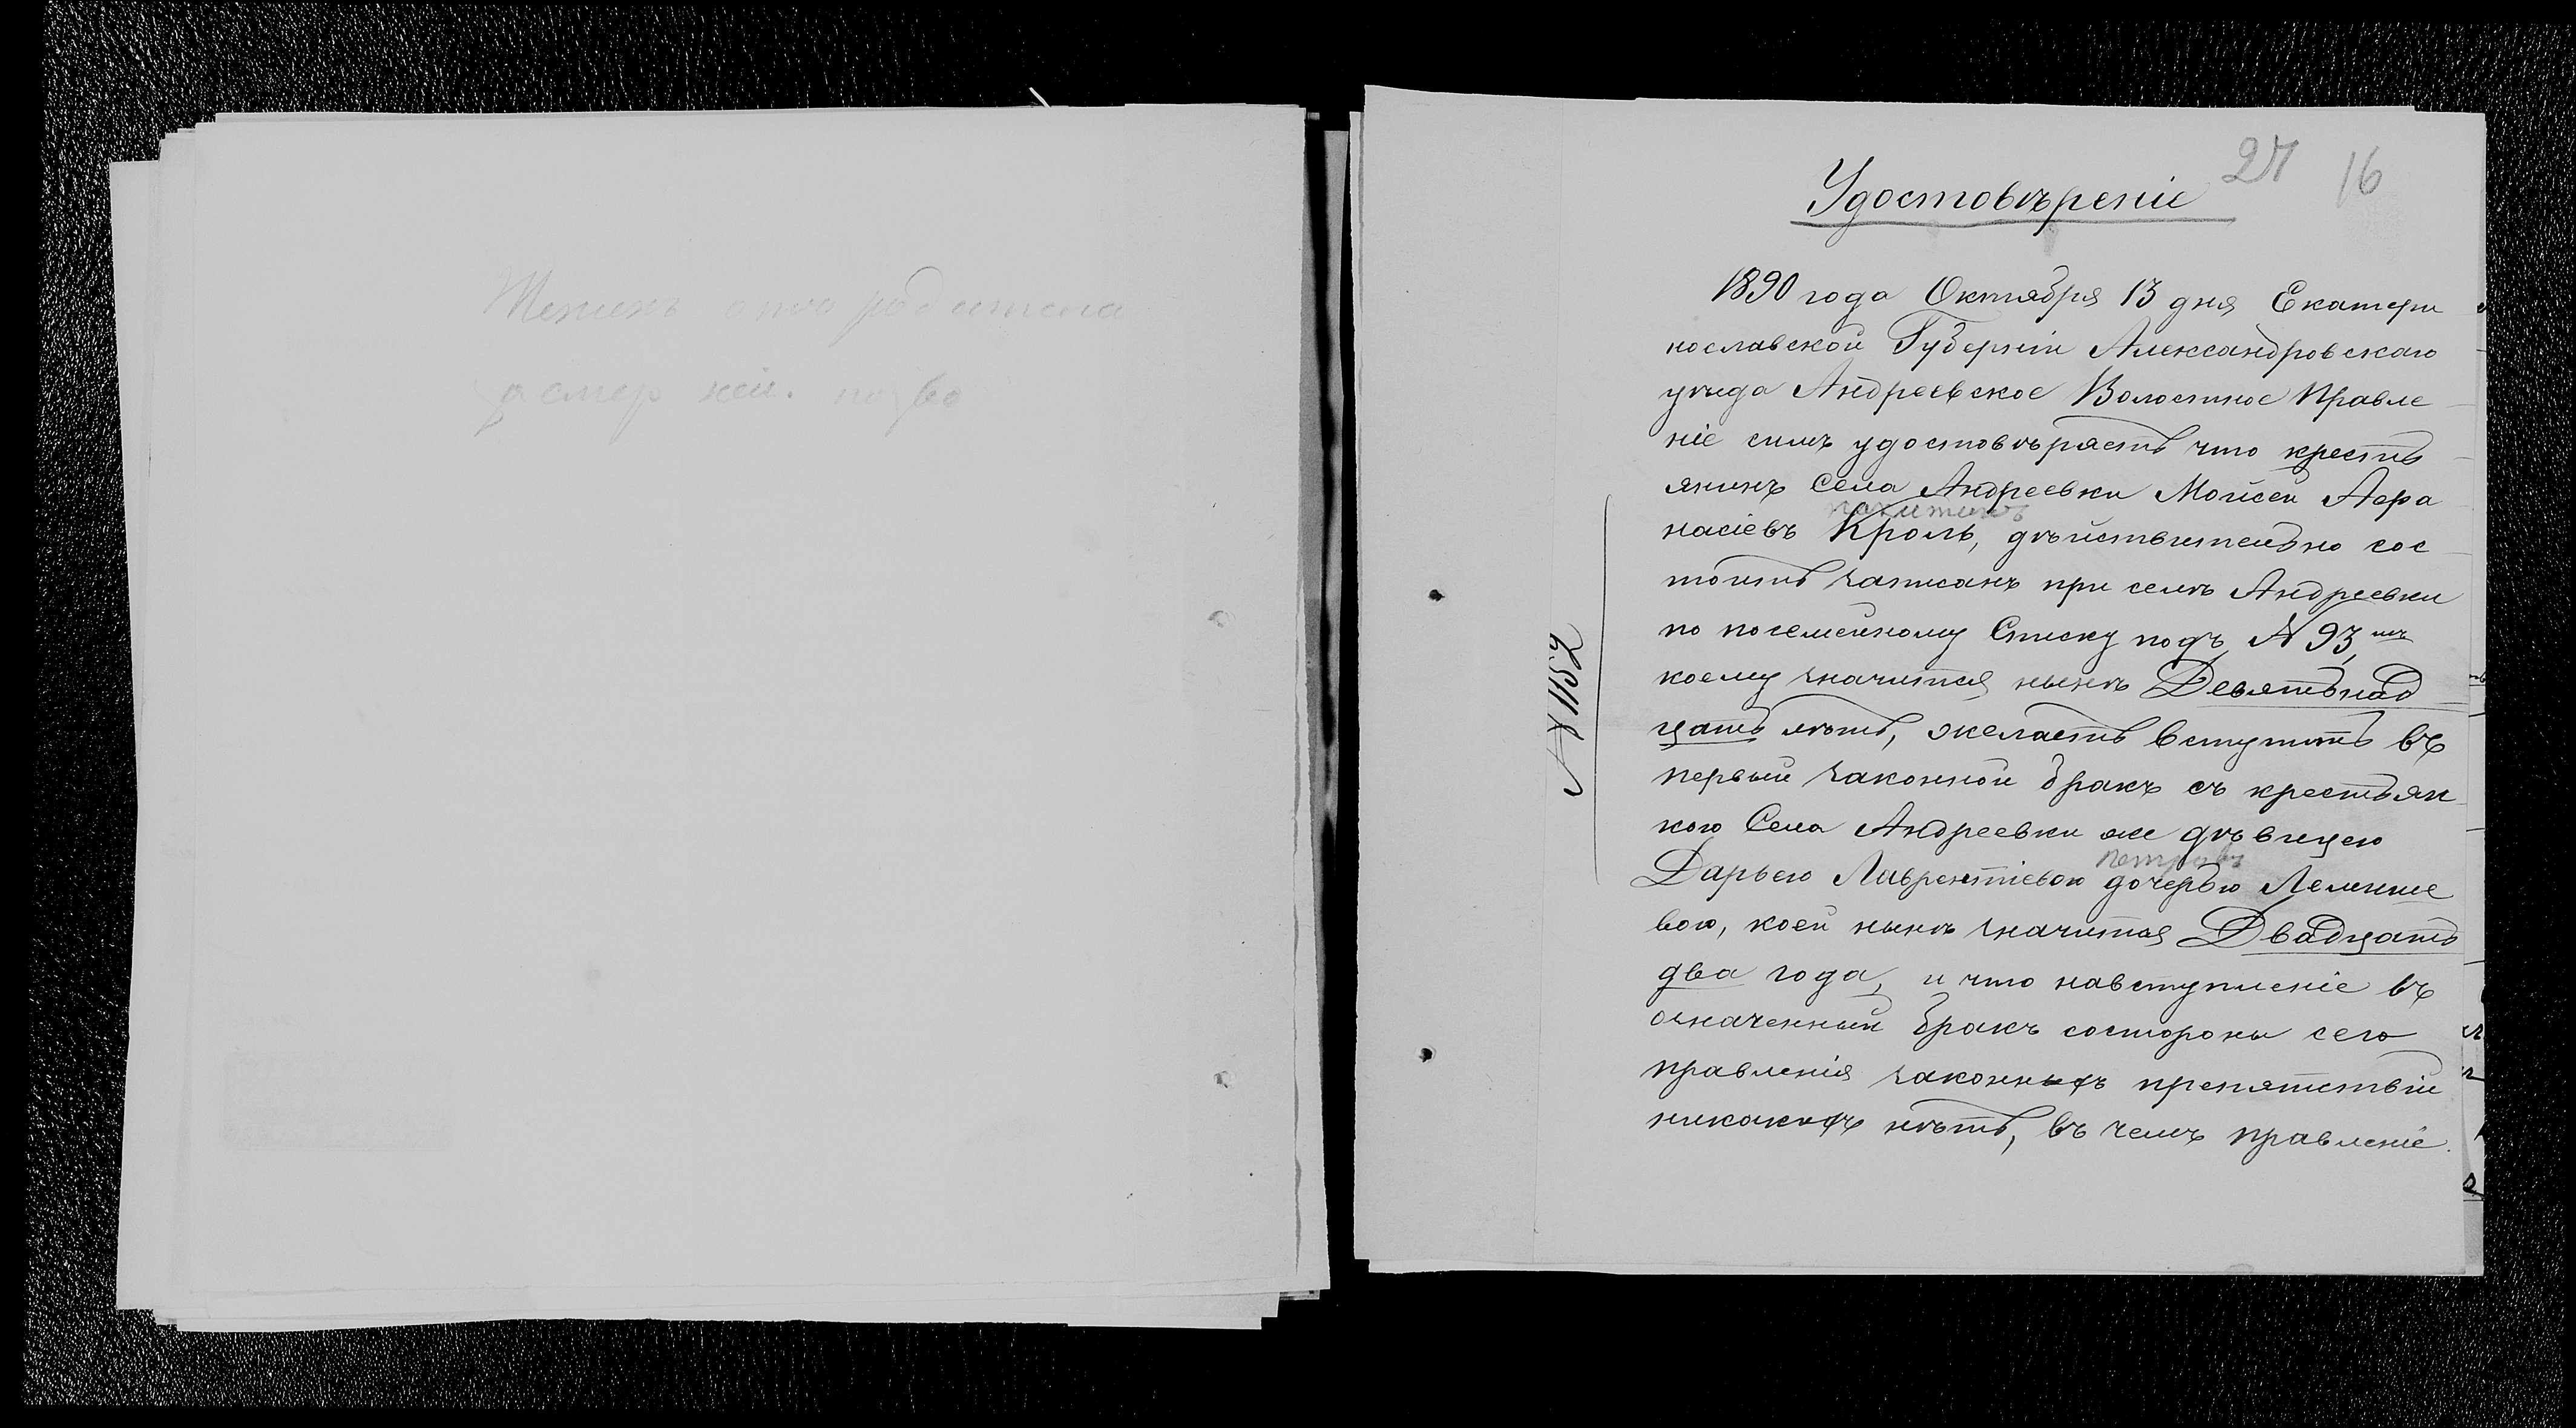 Женихъ
27 16
Удостовѣреніе
1890 года Октября 13 дня Екатери
нославской Губерніи Александровскаго
уѣзда Андреевское Волостное Правле
ніе симъ удостовѣряетъ что кресть
янинъ Села Андреевки Мойсей Афа
насіевъ Кроль, дѣйствительно сос
тоитъ записанъ при селѣ Андреевки
по посемейному Списку подъ № 93,
коему значится нынѣ Девятьнад
цать лѣтъ, желаетъ вступить въ
первый законной бракъ съ крестьян
кою Села Андреевки же дѣвицею
Петров
Дарьею Лаврентіевою дочерью
вою, коей нынѣ значится Двадцать
два года, и что навступленіе въ
означенный бракъ состороны сего
правленія законныхъ препятствій
никакихъ нѣтъ, въ чемъ правленіе.
№ 1152